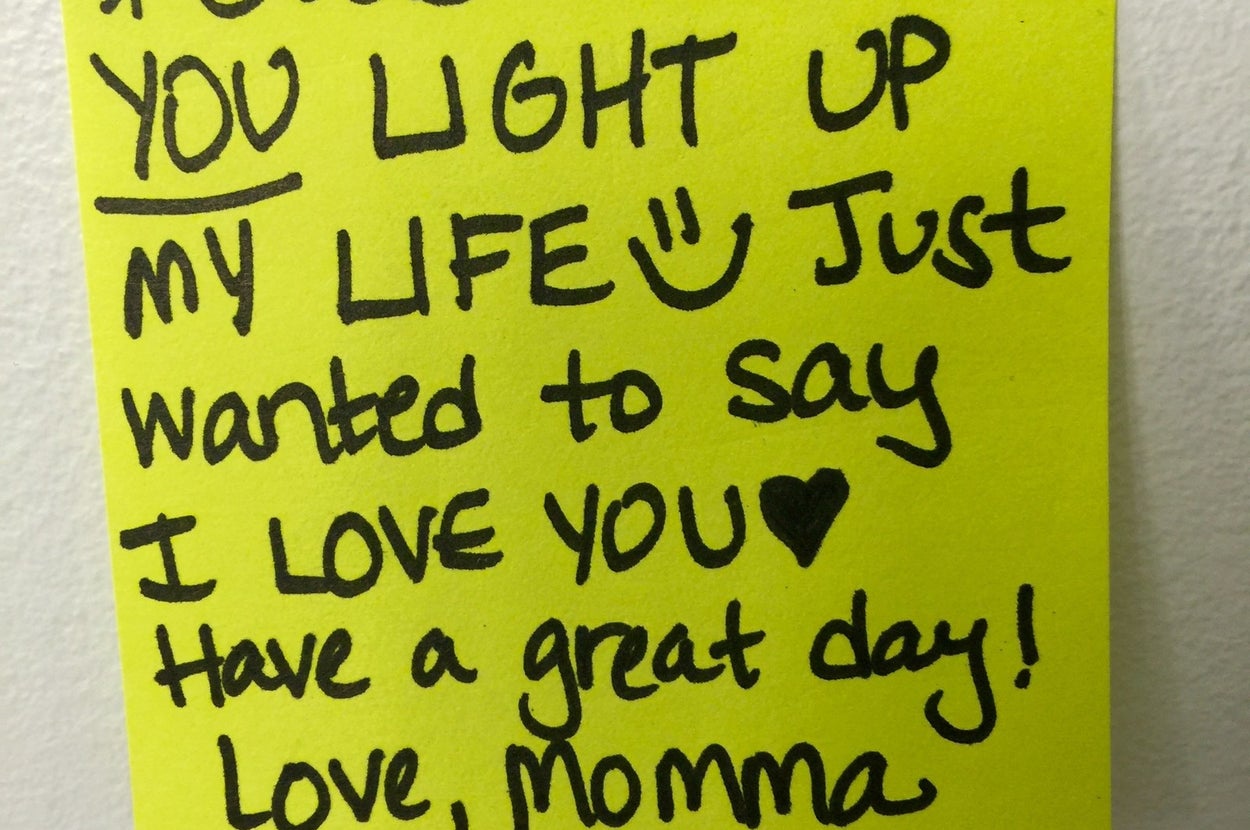 YOU LIGHT UP
MY LIFE Just
wanted to say
I LOVE YOU♥
Have a great day!
Love, Momma